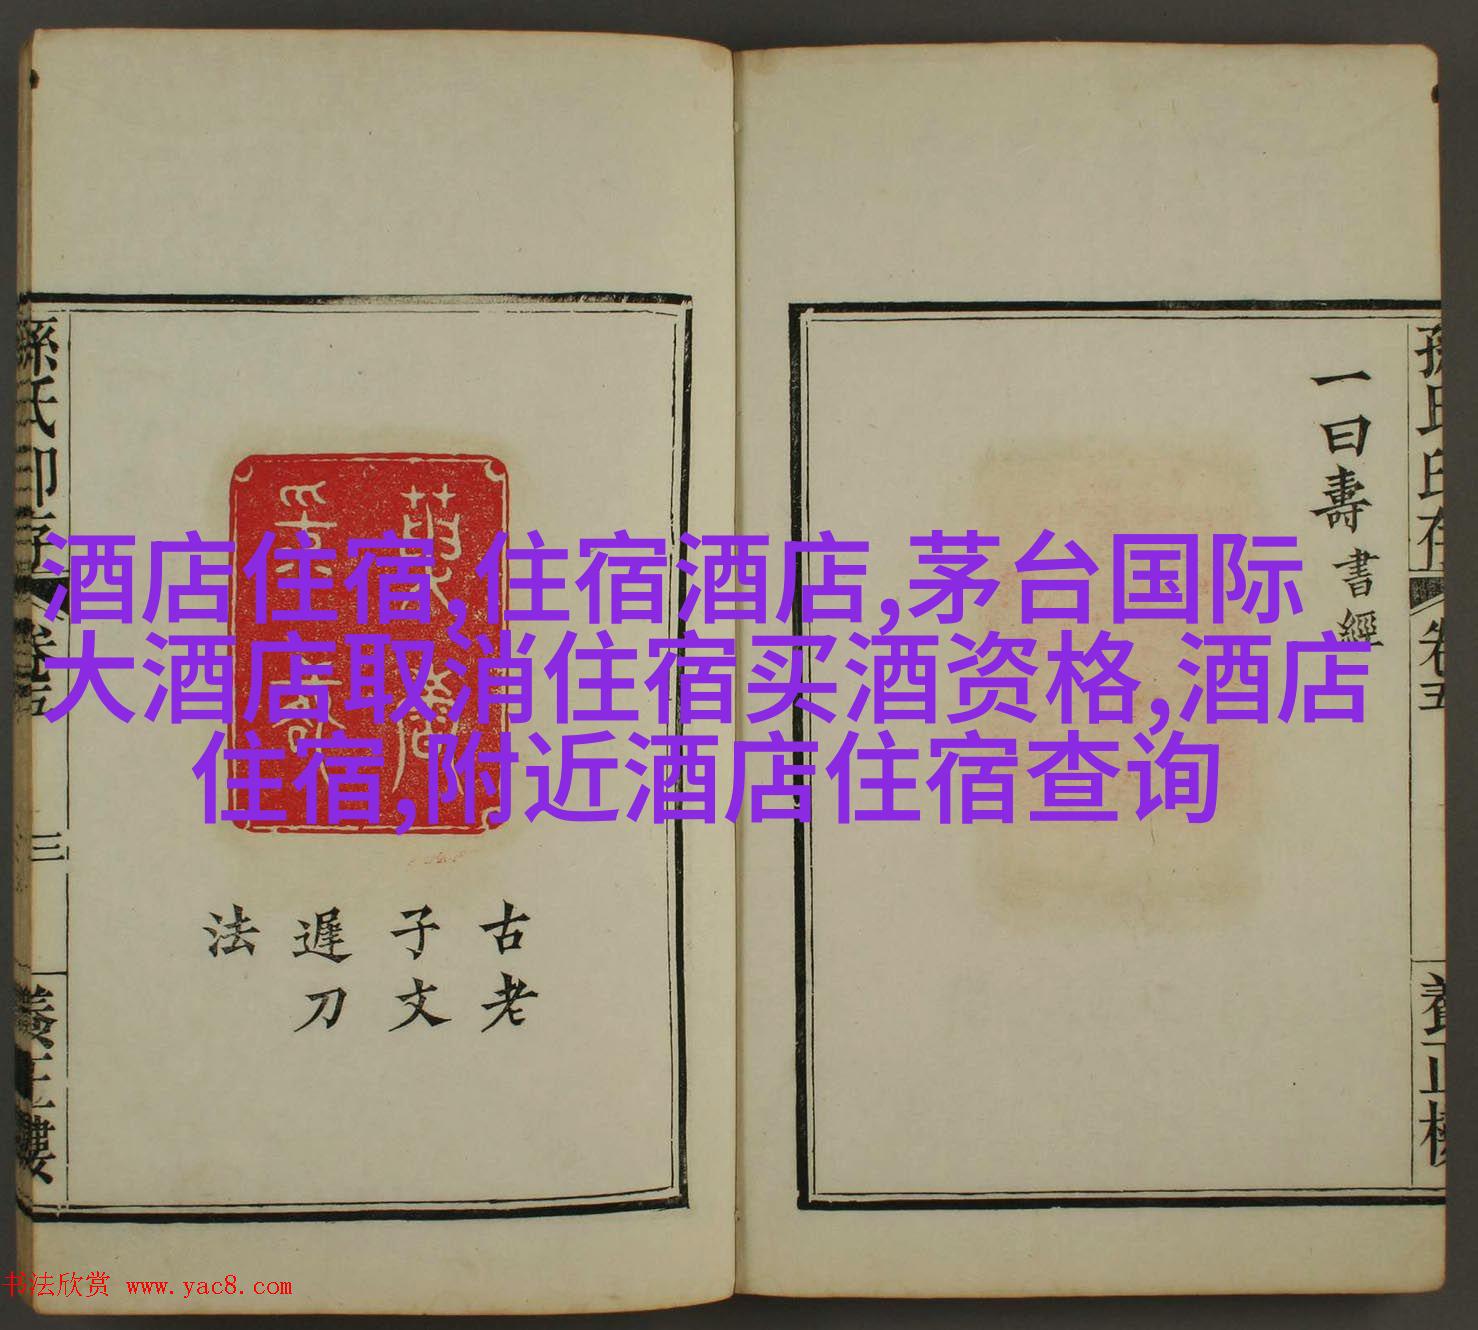 酒店住宿,住宿酒店,茅台国际
大酒店取消住宿买酒资格,酒店
住宿,附近酒店住宿查询
一曰壽書經
古老
子文
遲刀
法
卷五
三
養正樓
孫氏印存
卷五
書法欣赏 www.yac8.com